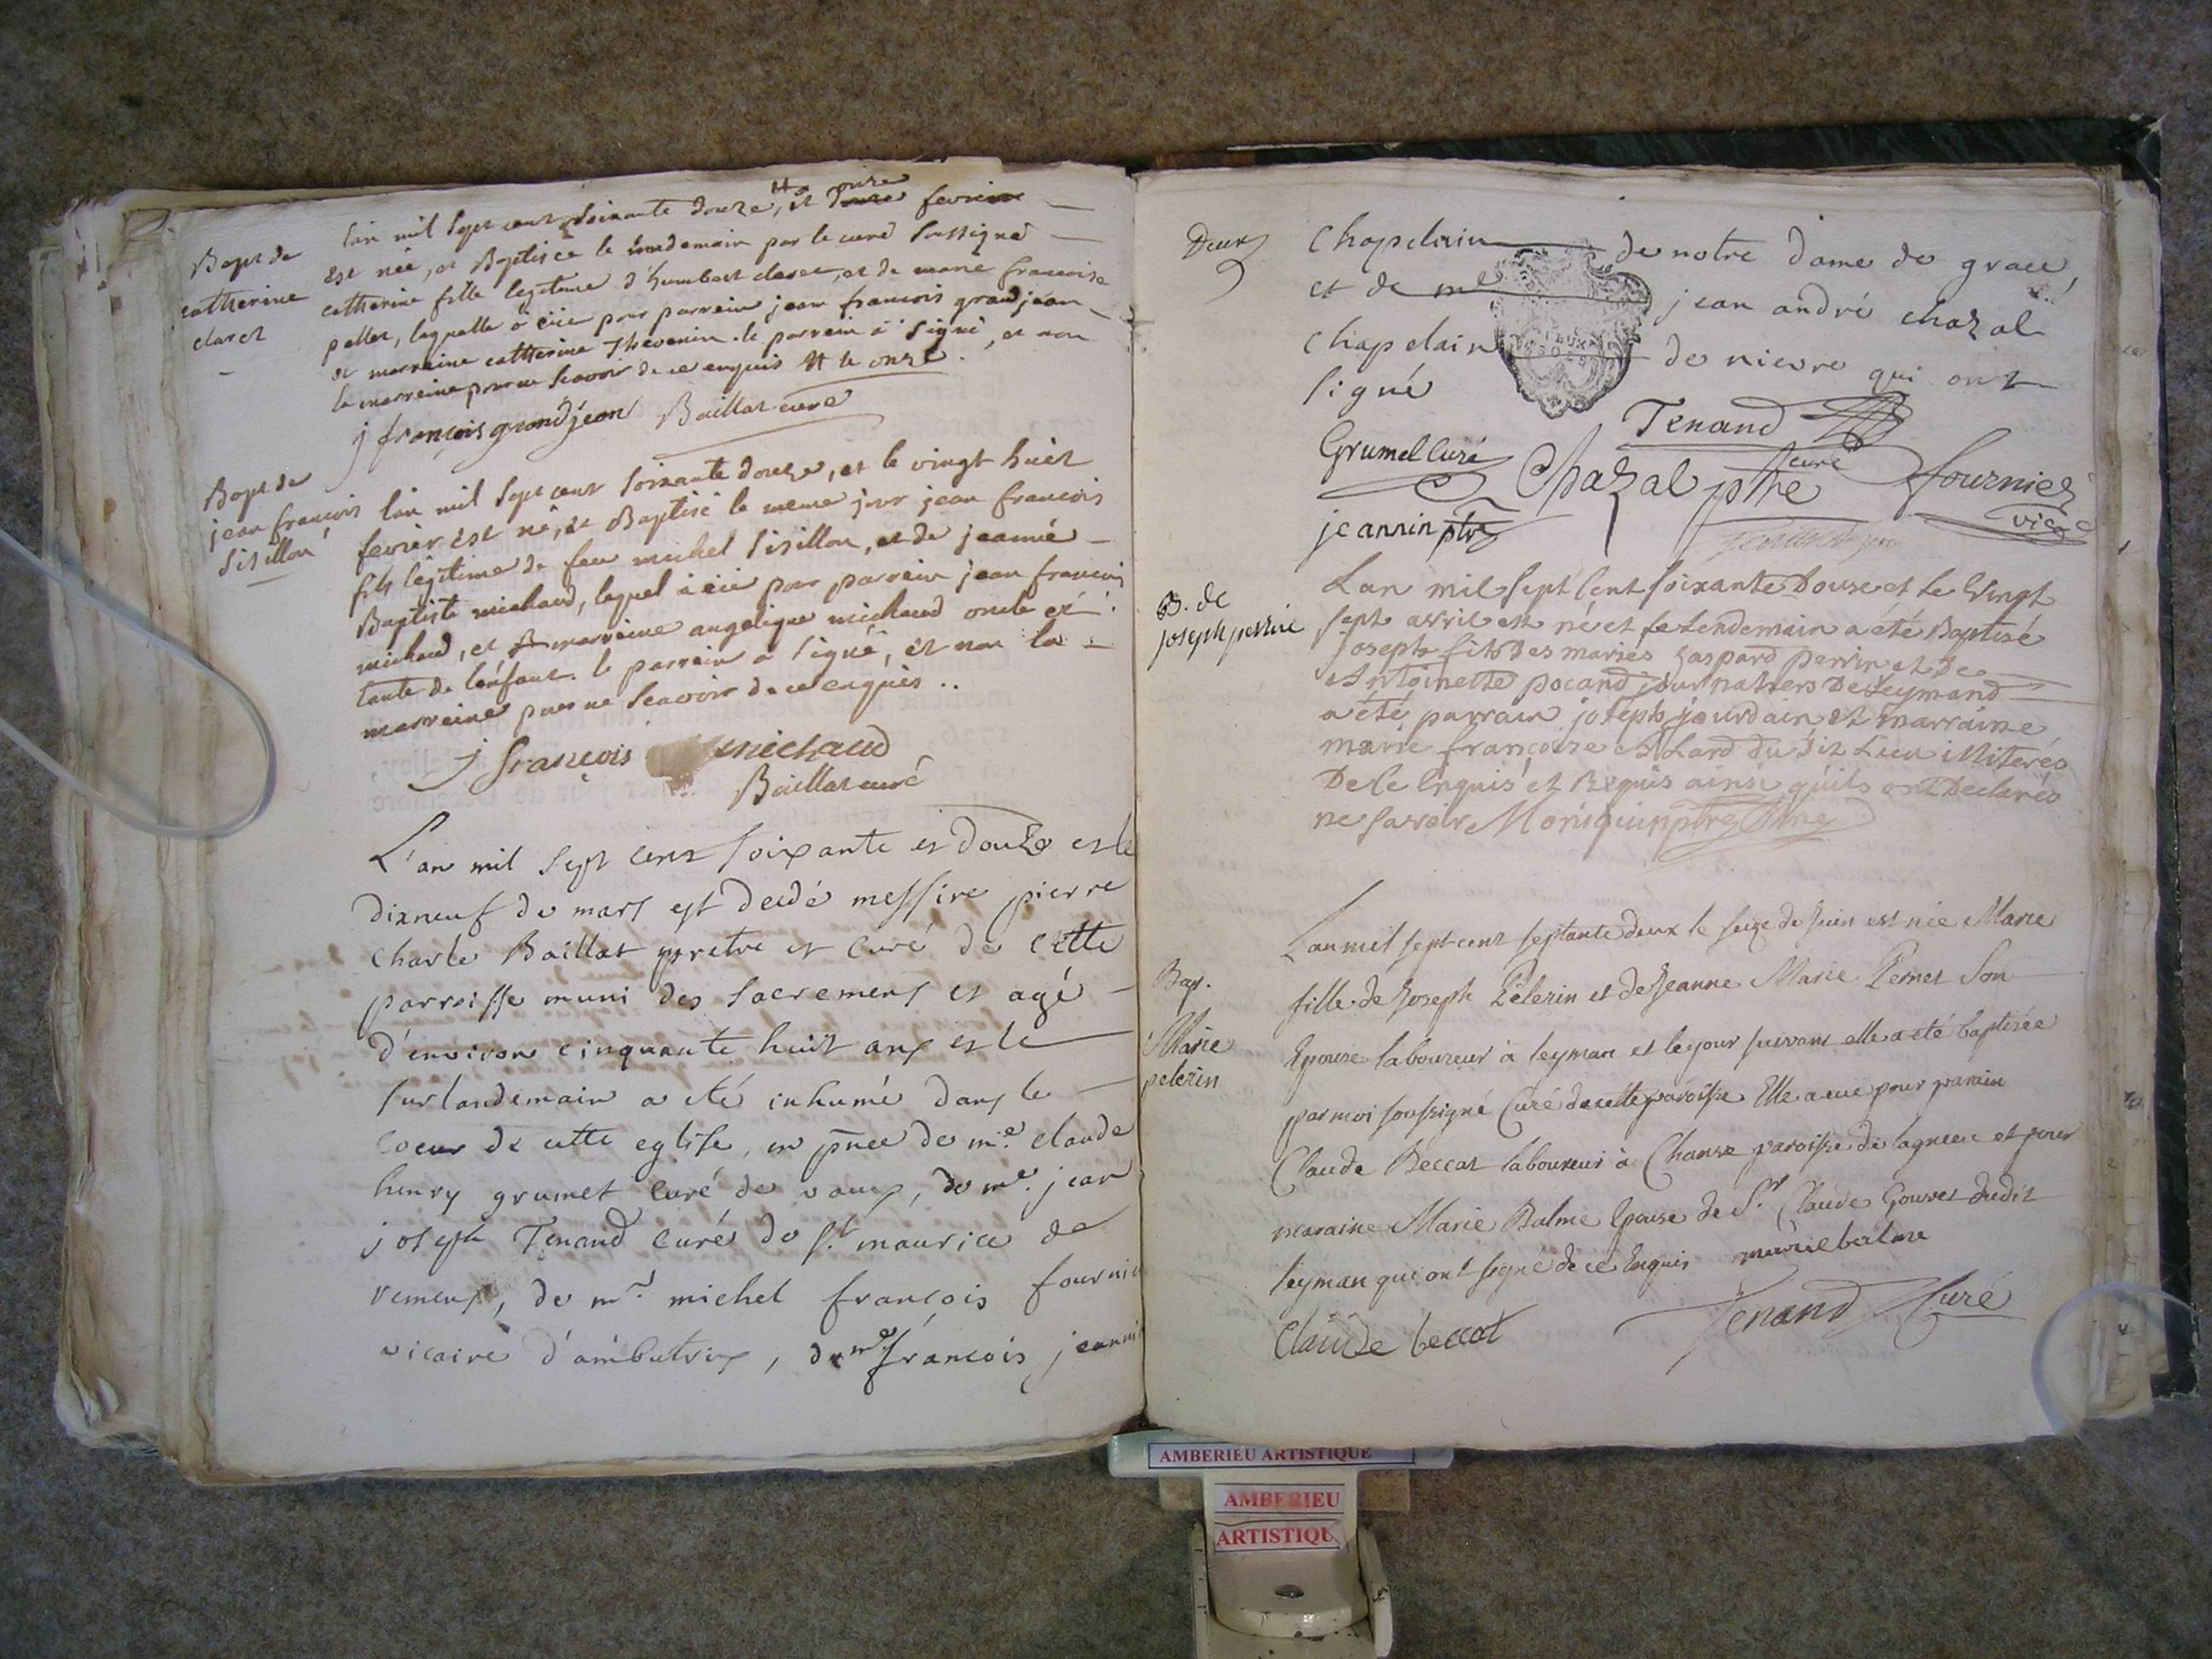 Bapt de
catherine
claret
lan mil sept cent soixante douze, et onze fevrier
est née, et Baptisée le lendemain par le curé soussigné
catherine fille legitime d'humbert claret, et de marie francoise
pellet, laquelle à eüe pour parrein jean francois grandjean
et marreine catherine Thevenin. le parrein a signé, et non
la marreine pour ne scavoir de ce enquis le onze.
j françois grandjean Baillat curé
Bapt de
jean francois
Sisillon
lan mil sept cent soixante douze, et le vingt huit
fevrier est né, et Baptisé le meme jour jean francois
fils légitime de feu michel Sisillon, et de jeanne
Baptiste michaud, lequel à eü pour parrein jean francois
michaud, et marreine angelique michaud oncle et
tante de lénfant. le parrein a signé, et non la
marreine pour ne scavoir de ce enquis..
j françois michaud
Baillat curé
L'an mil sept cent soixante et douze et le
dixneuf de mars est decedé messire pierre
charle Baillat pretre et curé de cette
parroisse muni des sacremens et agé
d'environ cinquante huit ans et le
surlandemain a été inhumé dans le
coeur de cette eglise, en pñce de me claude
henry grumet curé de vaux, de me. jean
joseph Tenand curé de st maurice de
remens, de mr. michel françois fournier
vicaire d'ambutrix, de me françois jeannin
Deux
Chapelain de notre dame de grace,
et de me jean andré chazal
Chapelain de nievre qui ont
signé
Tenand
curé
Grumet Curé Chazal ptre fournier
vice
jeannin ptre
B. de
joseph perrin
Lan mil sept cent soixante Douse et le Vingt
sept avril est né et le Lendemain a été Baptisé
joseph fils Des mariés gaspard perrin et De
Antoinette pocand journaliers De Leymand
a été parrain joseph jourdain et marraine
marie françoise du Dit Lieu illiterés
De Ce Enquis et Requis ainsi qu'ils ont Declarés
ne savoir
Bap.
Marie
pelerin
L'an mil sept cent septante deux le seize de Juin est née Marie
fille de Joseph Pélerin et de Jeanne Marie Pernet son
Epouse laboureur à leyman et le jour suivant elle a été baptisée
par moi soussigné Curé de cette paroisse Elle a eue pour parain
Claude Beccat laboureur à Chanve paroisse de lagneu et pour
maraine Marie Balme Epouse de Sr. Claude Gouvet dudit
leyman qui ont signé de ce Enquis marie balme
Claude beccat Tenand Curé
AMBERIEU ARTISTIQUE
AMBERIEU
ARTISTIQU